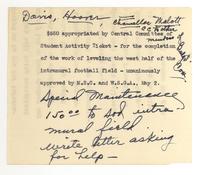 Davis, Hoover,
Chancellor Malott
$650 appropriated by Central Committee of
Student Activity Ticket - for the completion
of the work of leveling the west half of the
intramural football field - unanimously
approved by M.S.C. and W.S.G.A., May 2.
Special Maintenance
150.00 to sod intra
mural field
Wrote letter asking
for help -